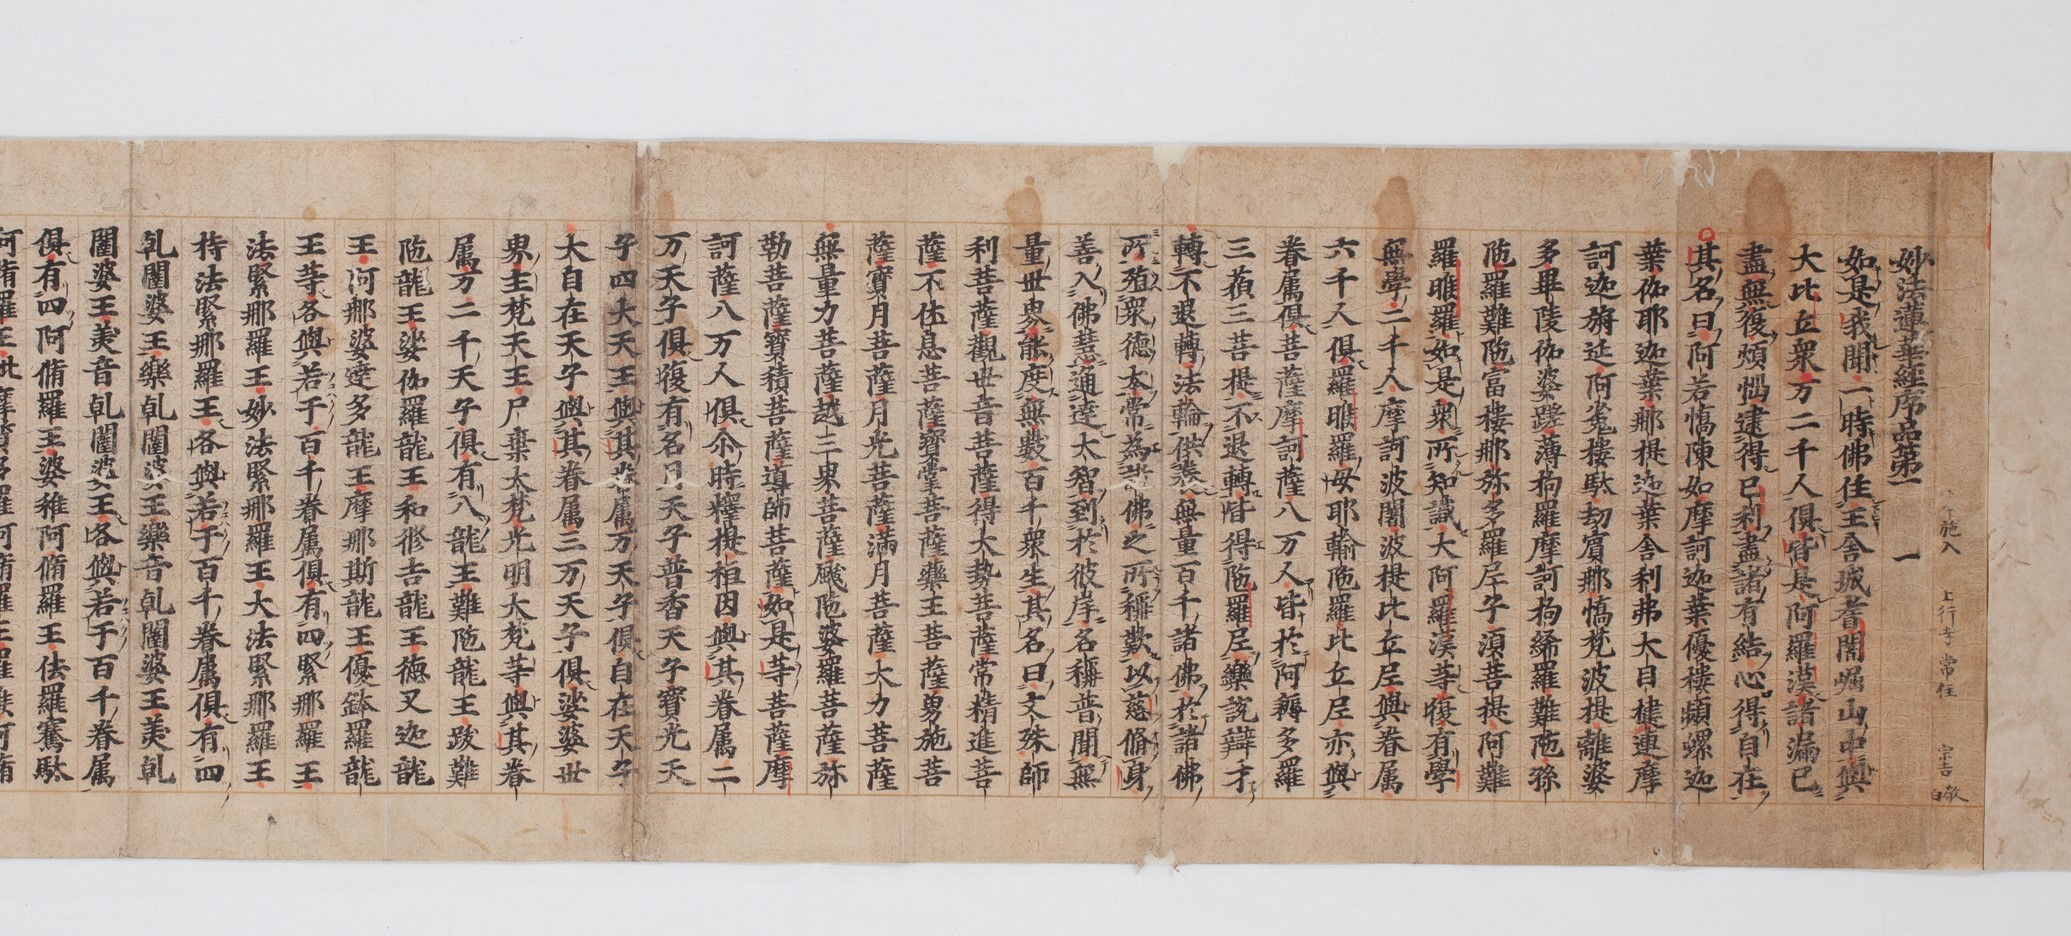 施入 上行寺常住 宗吉 敬白
妙法蓮華經序品第一 一
如是我聞一時佛住王舍城耆闍崛山中與
大比丘衆万二千人俱皆是阿羅漢諸漏已
盡無復煩惱逮得已利盡諸有結心得自在
其名曰阿若憍陳如摩訶迦葉優樓頻螺迦
葉伽耶迦葉那提迦葉舍利弗大目揵連摩
訶迦旃延阿㝹樓馱劫賓那憍梵波提離婆
多畢陵伽婆蹉薄拘羅摩訶拘絺羅難陁孫
陁羅難陁富樓那弥多羅尼子須菩提阿難
羅睺羅如是衆所知識大阿羅漢等復有學
無學二千人摩訶波闍波提比丘尼與眷属
六千人俱羅睺羅母耶輸陁羅比丘尼亦與
眷属俱菩薩摩訶薩八万人皆於阿耨多羅
三藐三菩提不退轉皆得陁羅尼樂說辯才
轉不退轉法輪供養無量百千諸佛於諸佛
所殖衆德本常為世佛之所稱歎以慈脩身
善入佛慧通達大智到於彼岸名稱普聞無
量世界能度無數百千衆生其名曰文殊師
利菩薩觀世音菩薩得大勢菩薩常精進菩
薩不休息菩薩寶掌菩薩藥王菩薩勇施菩
薩寶月菩薩月光菩薩滿月菩薩大力菩薩
無量力菩薩越三界菩薩颰陁婆羅菩薩弥
勒菩薩寶積菩薩導師菩薩如是等菩薩摩
訶薩八万人俱尒時釋提桓因與其眷属二
万天子俱復有名月天子普香天子寶光天
子四大天王與其眷属万天子俱自在天子
大自在天子與其眷属三万天子俱娑婆世
界主梵天王尸棄大梵光明大梵等與其眷
属万二千天子俱有八龍王難陁龍王跋難
陁龍王娑伽羅龍王和脩吉龍王德叉迦龍
王阿那婆達多龍王摩那斯龍王優鉢羅龍
王等各與若干百千眷属俱有四緊那羅王
法緊那羅王妙法緊那羅王大法緊那羅王
持法緊那羅王各與若干百千眷属俱有四
乹闥婆王樂乹闥婆王樂音乹闥婆王美乹
闥婆王美音乹闥婆王各與若干百千眷属
俱有四阿脩羅王婆稚阿脩羅王佉羅騫馱